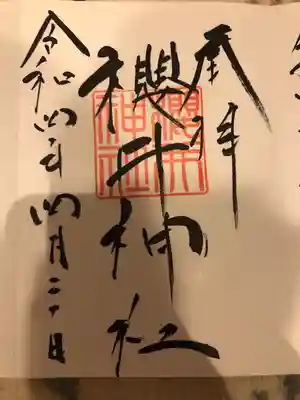 奉拝
櫻井神社
櫻井
神社
令和四年四月二十日